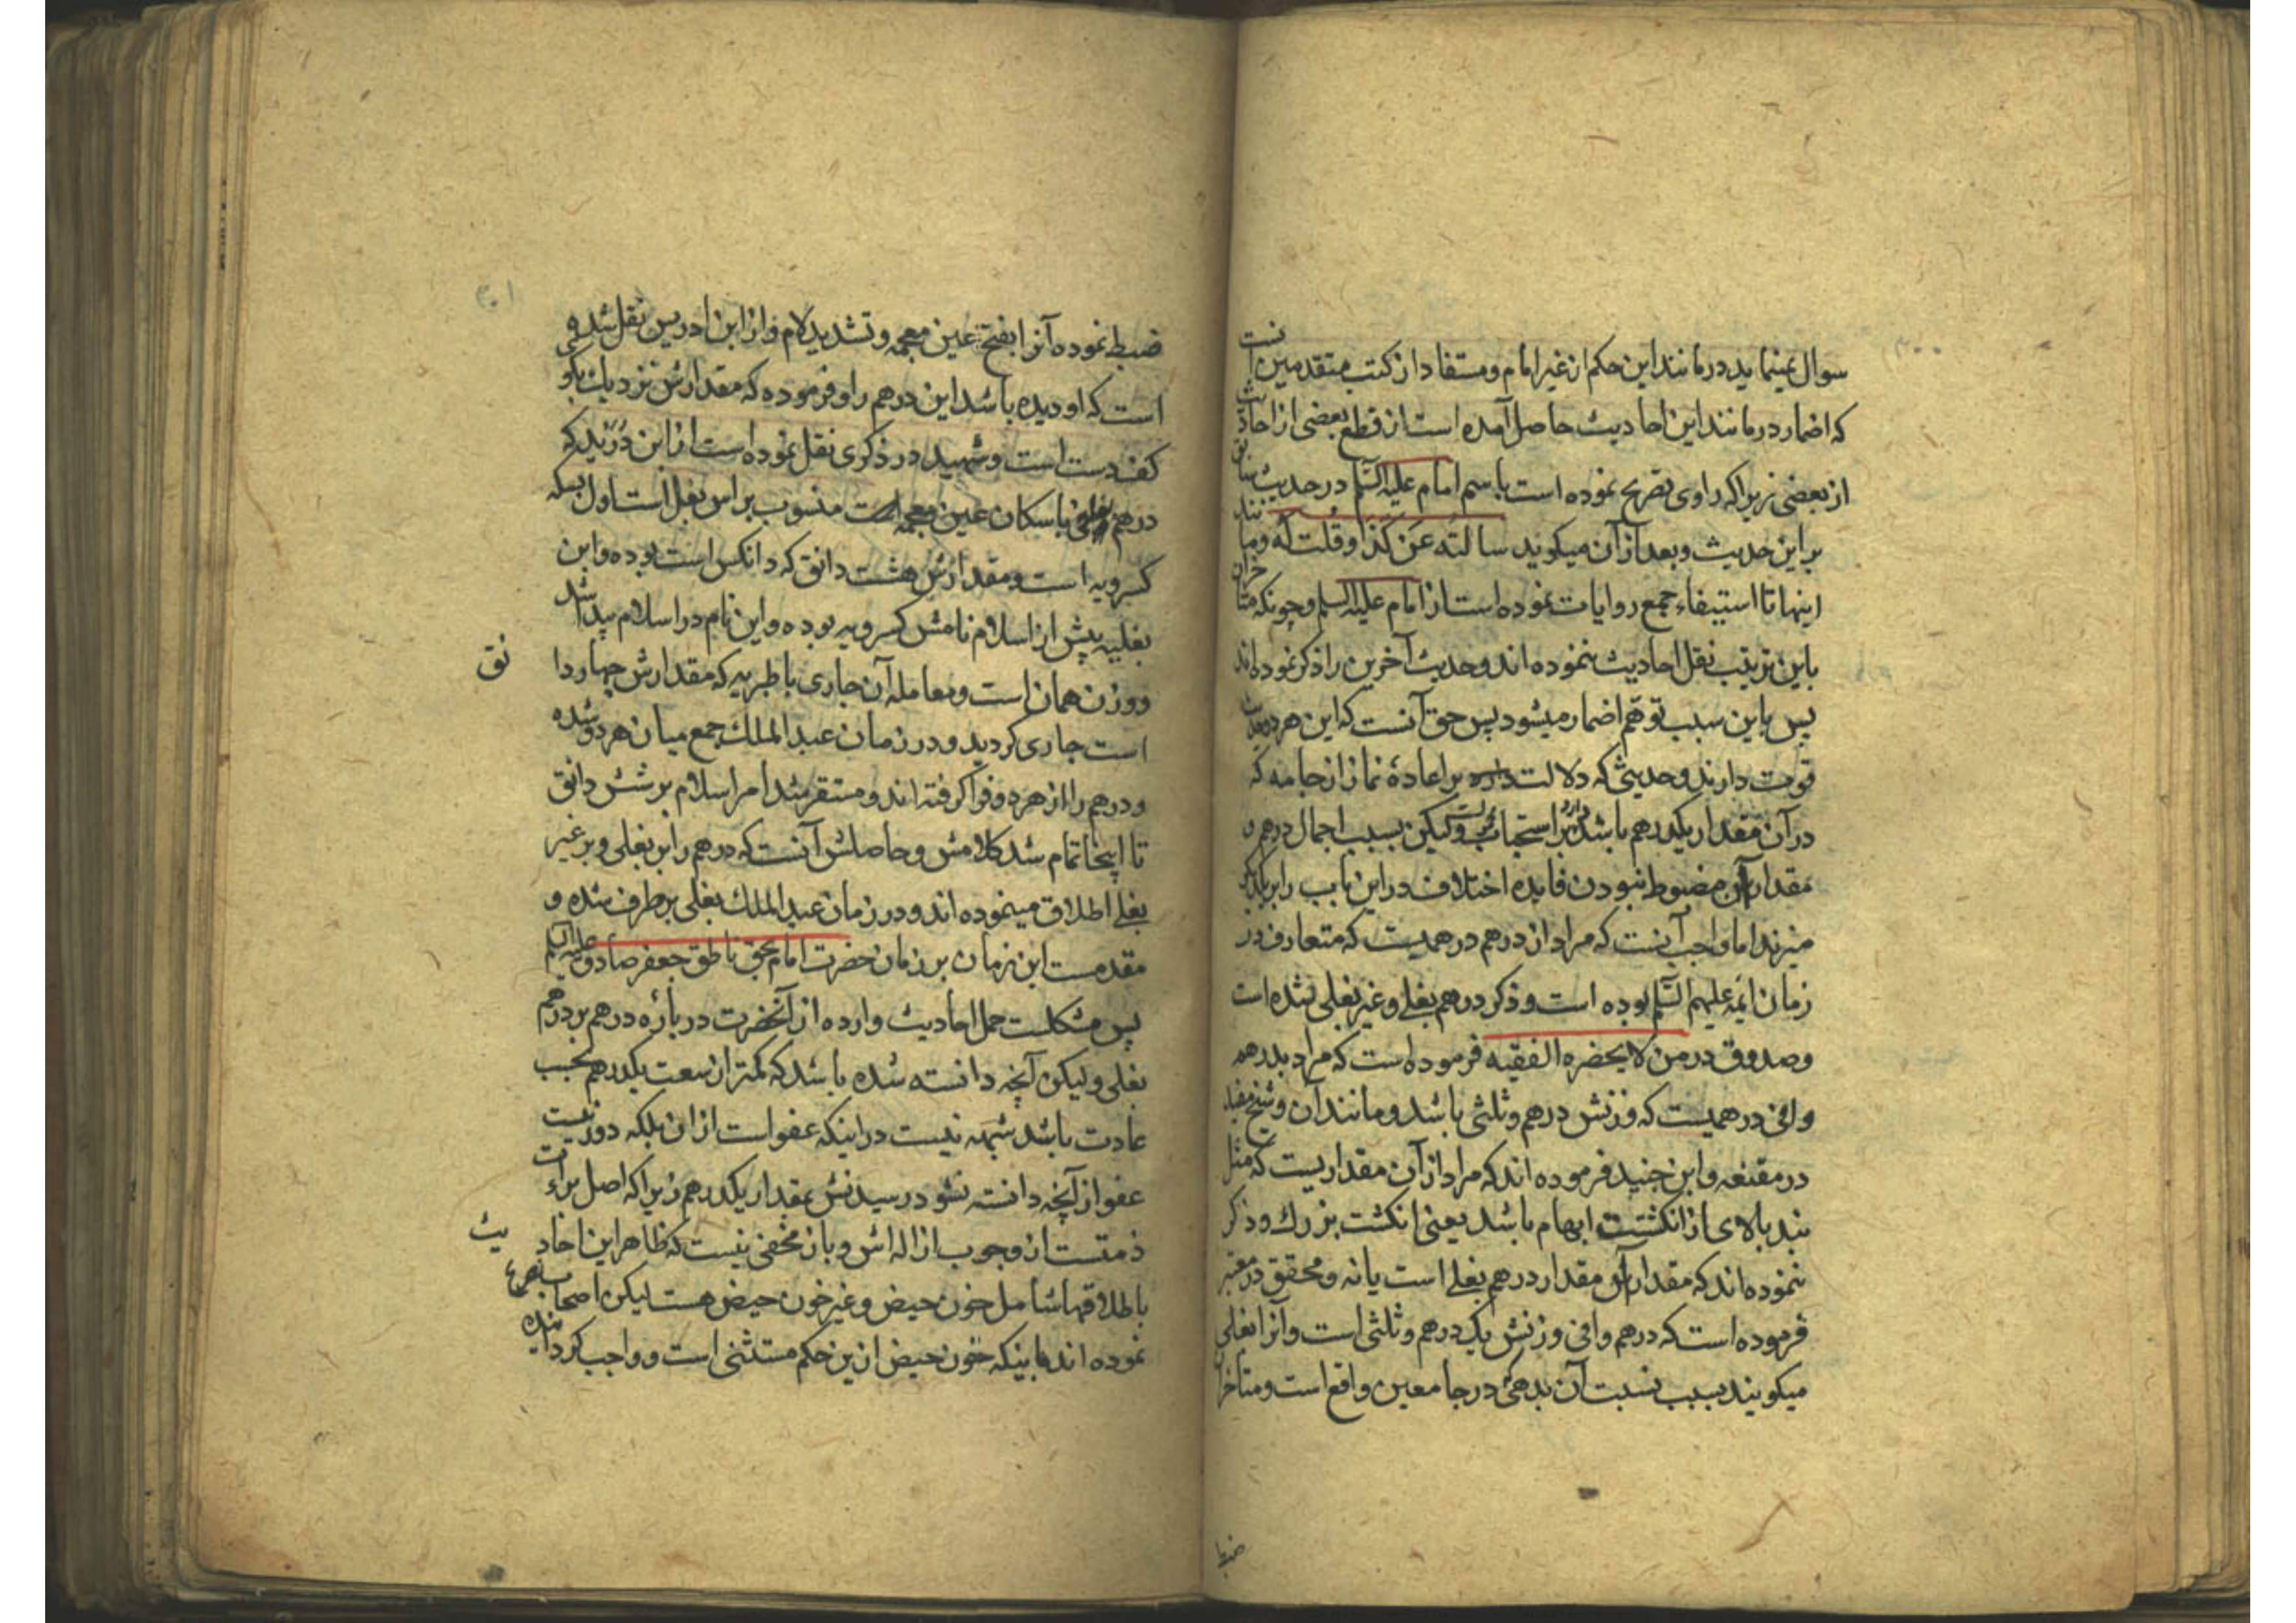 ۳۰۰
سوال نمینماید در مانند این حکم از غیر امام و مستفاد از کتب متقدمین انست
که اضمار در مانند این احادیث حاصل آمده است از قطع بعضی از احادیث
از بعضی زیرا که راوی تصریح نموده است باسم امام علیه السّلم در حدیث سابق
بر این حدیث و بعد از آن میکوید سالته عن کذا و قلت له وما نند
اینها تا استیفاء جمع روایات نموده است از امام علیه السلم و چونکه متاخران
باین ترتیب نقل احادیث ننموده اند و حدیث آخرین را ذکر نموده اند
پس باین سبب توهّم اضمار میشود پس حق آنست که این هر دو حدیث
قوت دارند و حدیثی که دلالت دارد بر اعادهٔ نماز از جامه که
در آن مقدار یکدرهم باشد بر استحباب ولیکن بسبب اجمال درهم و
مقدار آن مضبوط نبودن فایده اختلاف در این باب را
میزند اما واجب آنست که مراد از درهم درهمیست که متعارف در
زمان ایمه علیهم السّلم بوده است و ذکر درهم بغلی و غیر بغلی نشده است
و صدوق در من لا یحضره الفقیه فرموده است که مراد بدرهم
وافی درهمیست که وزنش درهم و ثلثی باشد و مانند آن و شیخ مفید
در مقنعه و ابن جنید فرموده اند که مراد از آن مقداریست که مثل
بند بالای از انکشت ابهام باشد یعنی انکشت بزرك و ذکر
ننموده اند که مقدار آن مقدار درهم بغلی است یا نه و محقق در معتبر
فرموده است که درهم وافی وزنش یک درهم و ثلثی است و آنرا بغلی
میکویند بسبب نسبت آن بدهی در جامعین واقع است و متاخران
ضبط
۳۰۱
ضبط نموده آنرا بفتح عین معجمه و تشدید لام و از ابن ادریس نقل شده
است که او دیده باشد این درهم را و فرموده که مقدارش نزدیك بکوی
کف دست است و شهید در ذکری نقل نموده است از ابن دُرَید که
درهم بغلی باسکان عین معجمه است منسوب براس بغل است اول بسکه
کسرویه است و مقدارش هشت دانق که دانکس است بوده و این
بغلیه پیش از اسلام نامش کسرویه بوده و این نام در اسلام پیدا شد
و وزن همان است و معامله آن جاری با طبریه که مقدارش چهار دانق
است جاری کردید و در زمان عبد الملك جمع میان هر دو شده
و درهم را از هر دو فرا کرفته اند و مستقر شد امر اسلام بر شش دانق
تا اینجا تمام شد کلامش و حاصلش آنست که درهم را بر بغلی و بر غیر
بغلی اطلاق مینموده اند و در زمان عبد الملك بغلی بر طرف شده و
مقدمست این زمان بر زمان حضرت امام بحق ناطق جعفر صادق علیه السلم
پس مشکلست حمل احادیث وارده از آنحضرت در باره درهم بر درهم
بغلی ولیکن آنچه دانسته شده باشد که کمتر از سعت یکدرهم بحسب
عادت باشد شبهه نیست در اینکه عفو است از ان بلکه دور نیست
عفو از آنچه دانسته نشود رسیدنش بمقدار یکدرهم زیرا که اصل براءت
ذمتست از وجوب ازاله اش و باز مخفی نیست که ظاهر این احادیث
باطلاقها شامل خون حیض و غیر خون حیض هست لیکن اصحاب تصریح
نموده اند باینکه خون حیض ازین حکم مستثنی است و واجب کردانیده